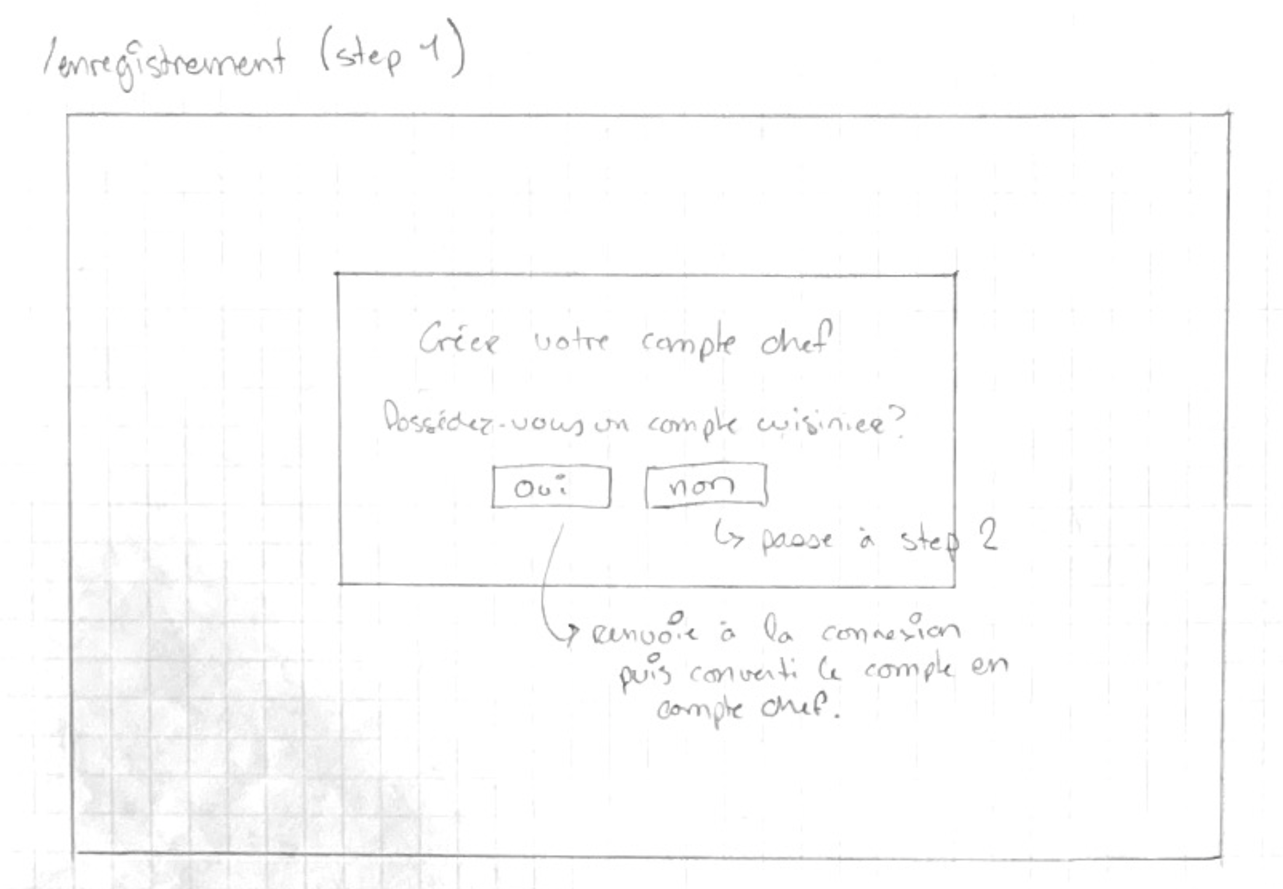 /enregistrement (step 1)
Créer votre compte chef
Possédez-vous un compte cuisinier?
oui
non
↳ passe à step 2
↳ renvoie à la connexion
puis converti le compte en
compte chef.